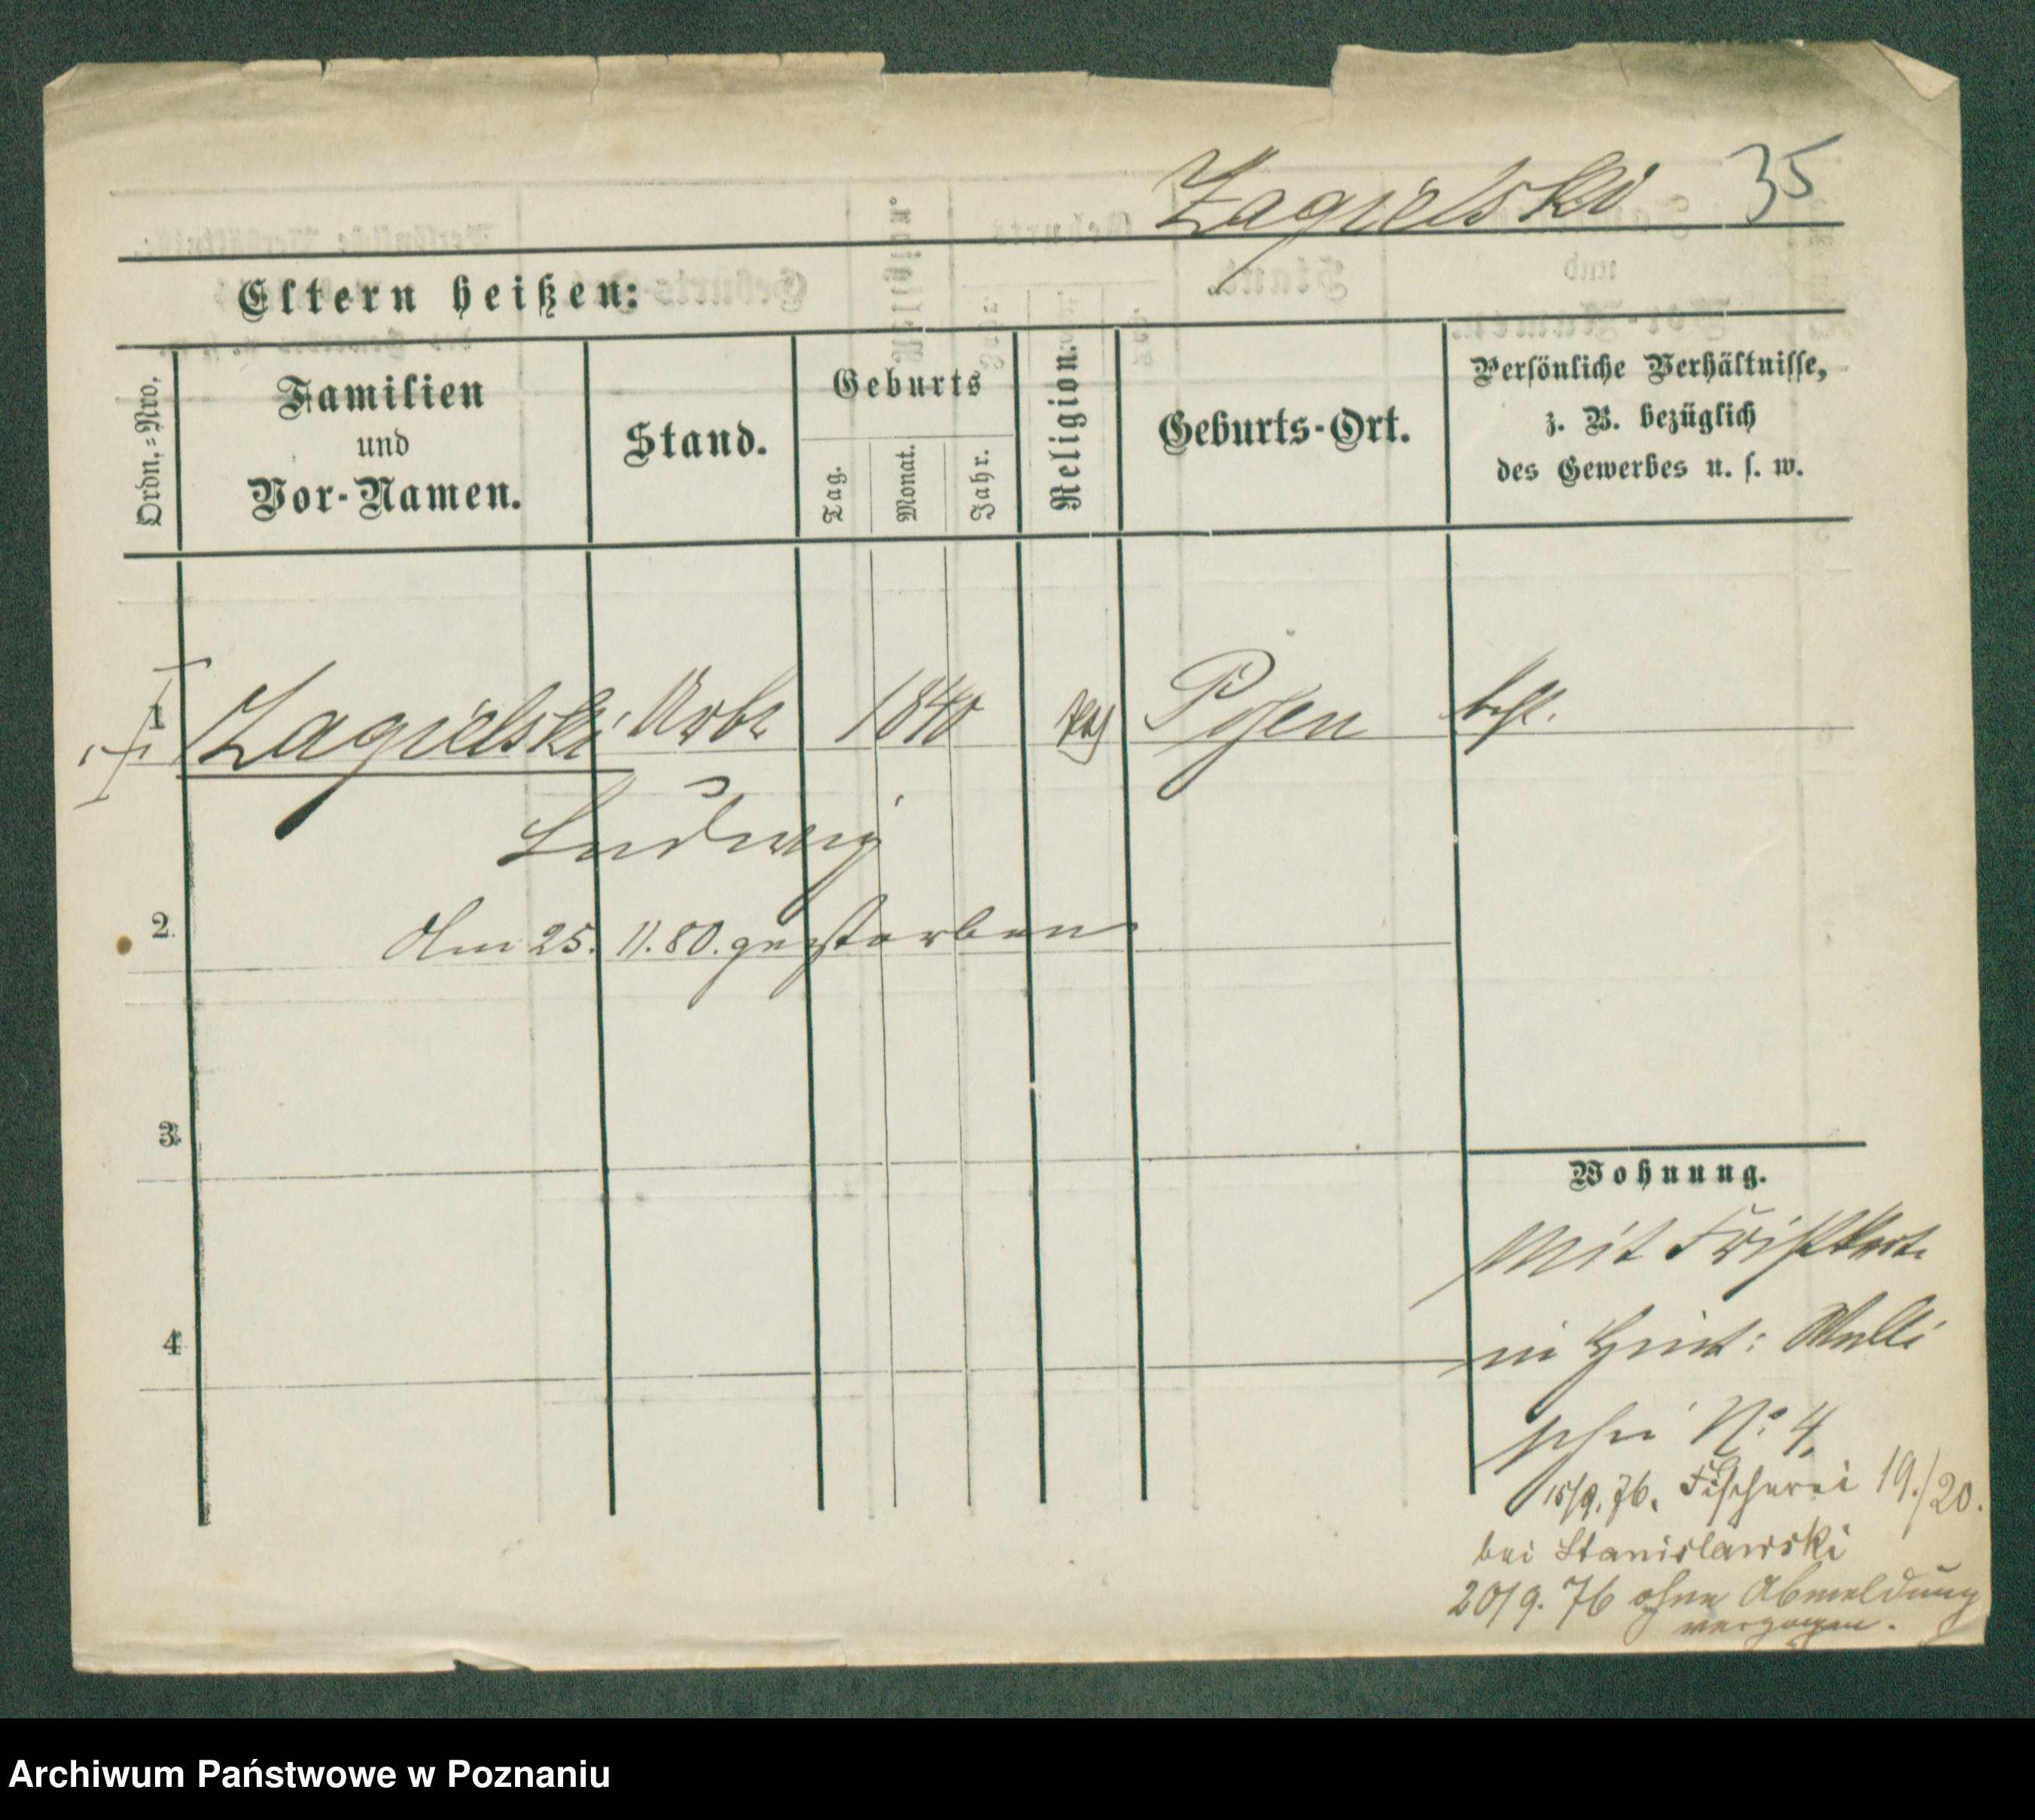 Zagielski 35
Eltern heißen:
Ordn.=Nro.
Familien
und
Vor-Namen.
Stand.
Geburts
Tag.
Monat.
Jahr.
Religion.
Geburts-Ort.
Persönliche Verhältnisse,
z. B. bezüglich
des Gewerbes u. s. w.
1 Zagielski Arbr 1840 Posen
Ludwig
2
Am 25. 11. 80. gestorben
3
Wohnung.
Mit
4
in
No 4,
15/9. 76. Fischerei 19./20.
bei Stanislawski
20/9. 76 ohne Abmeldung
verzogen.
Archiwum Państwowe w Poznaniu